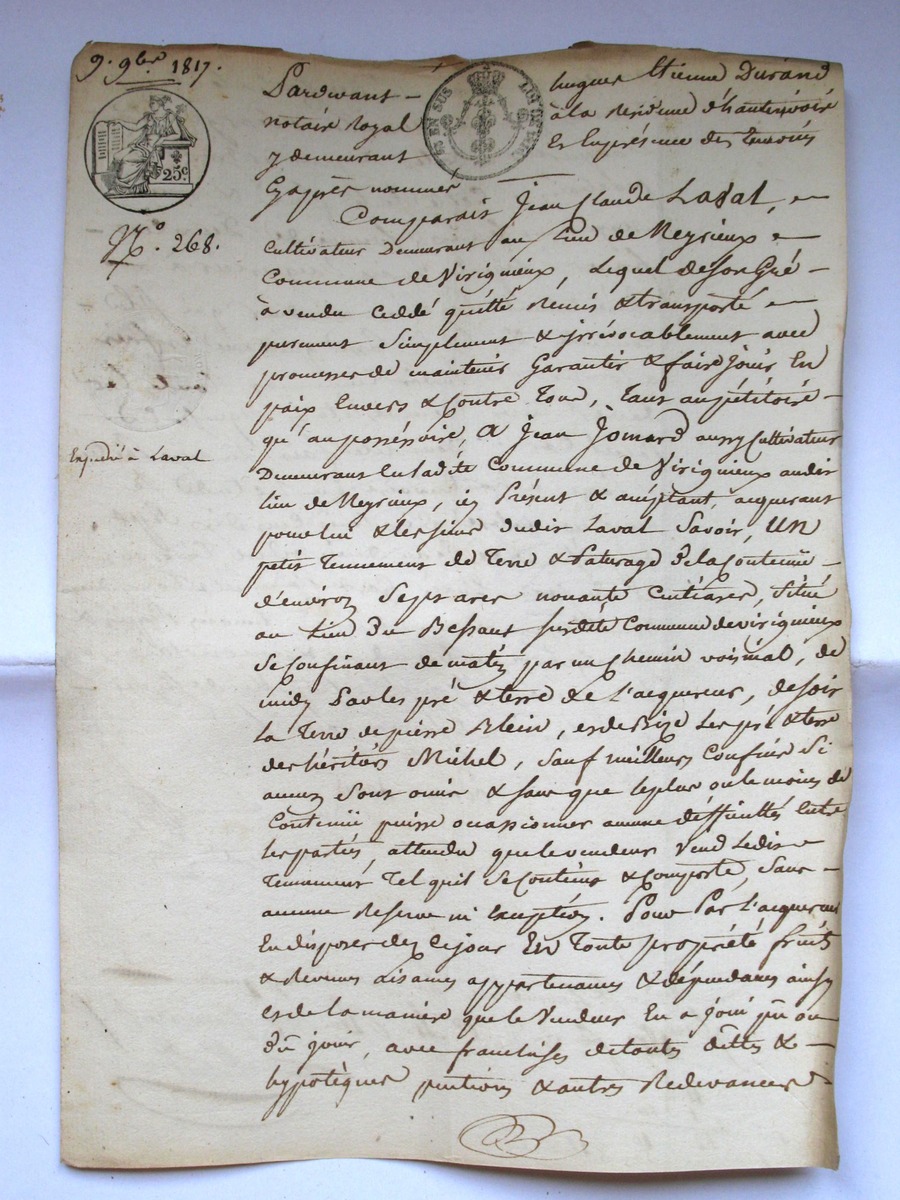 9. 9bre 1817.
25c.
N° 268.
Expédié à Laval
Pardevant hugues Etienne Durand
notaire Royal à la Residence d'hauterivoire
y demeurant Et En présence des Temoins
Cy après nommés
Comparait Jean Claude Laval,
Cultivateur Demeurant au Lieu de Meyrieux
Commune de Virigneux, Lequel de son Gré
à vendu ceddé quitté Remis & transporté
purement Simplement & irrévocablement avec
promesse de maintenir Garantir & faire Jouir En
paix Envers & Contre Tous, Tant au pétitoire
qu'au possessoire, à Jean Jomard aussy Cultivateur
Demeurant En ladite Commune de Virigneux audit
Lieu de Meyrieux, icy Présent & acceptant, acquerant
pour lui & les siens dudit Laval Savoir, UN
petit Tennement de Terre & Paturage De la Contenue
d'environ Sept ares nonante Centiares, Situé
au Lieu Du Bessant susdite Commune de virigneux
Se Confinant de matin par un Chemin voisinal, de
midy Par les pré & terre de l'acquereur, de soir
La Terre de pierre Blein, et de Bize Les pré & terre
des héritiers Michel, Sauf meilleurs Confins Si
aucuns Sont omis & sans que le plus ou le moins de
Contenue puisse occassionner aucune difficultés Entre
Les parties, attendu que le vendeur Vend Ledit
Tennement Tel quil Se Contient & Comporte, Sans
aucune Reserve ni Exception. Pour Par l'acquereur
En disposer dez Ce jour En Toute propriété fruits
& Revenus Aisances appartenances & dépendances ainsy
et de la manière que le Vendeur En a Joui pû ou
dû jouir, avec franchises de toutes dettes &
hypotèques pentions & autres Redevances